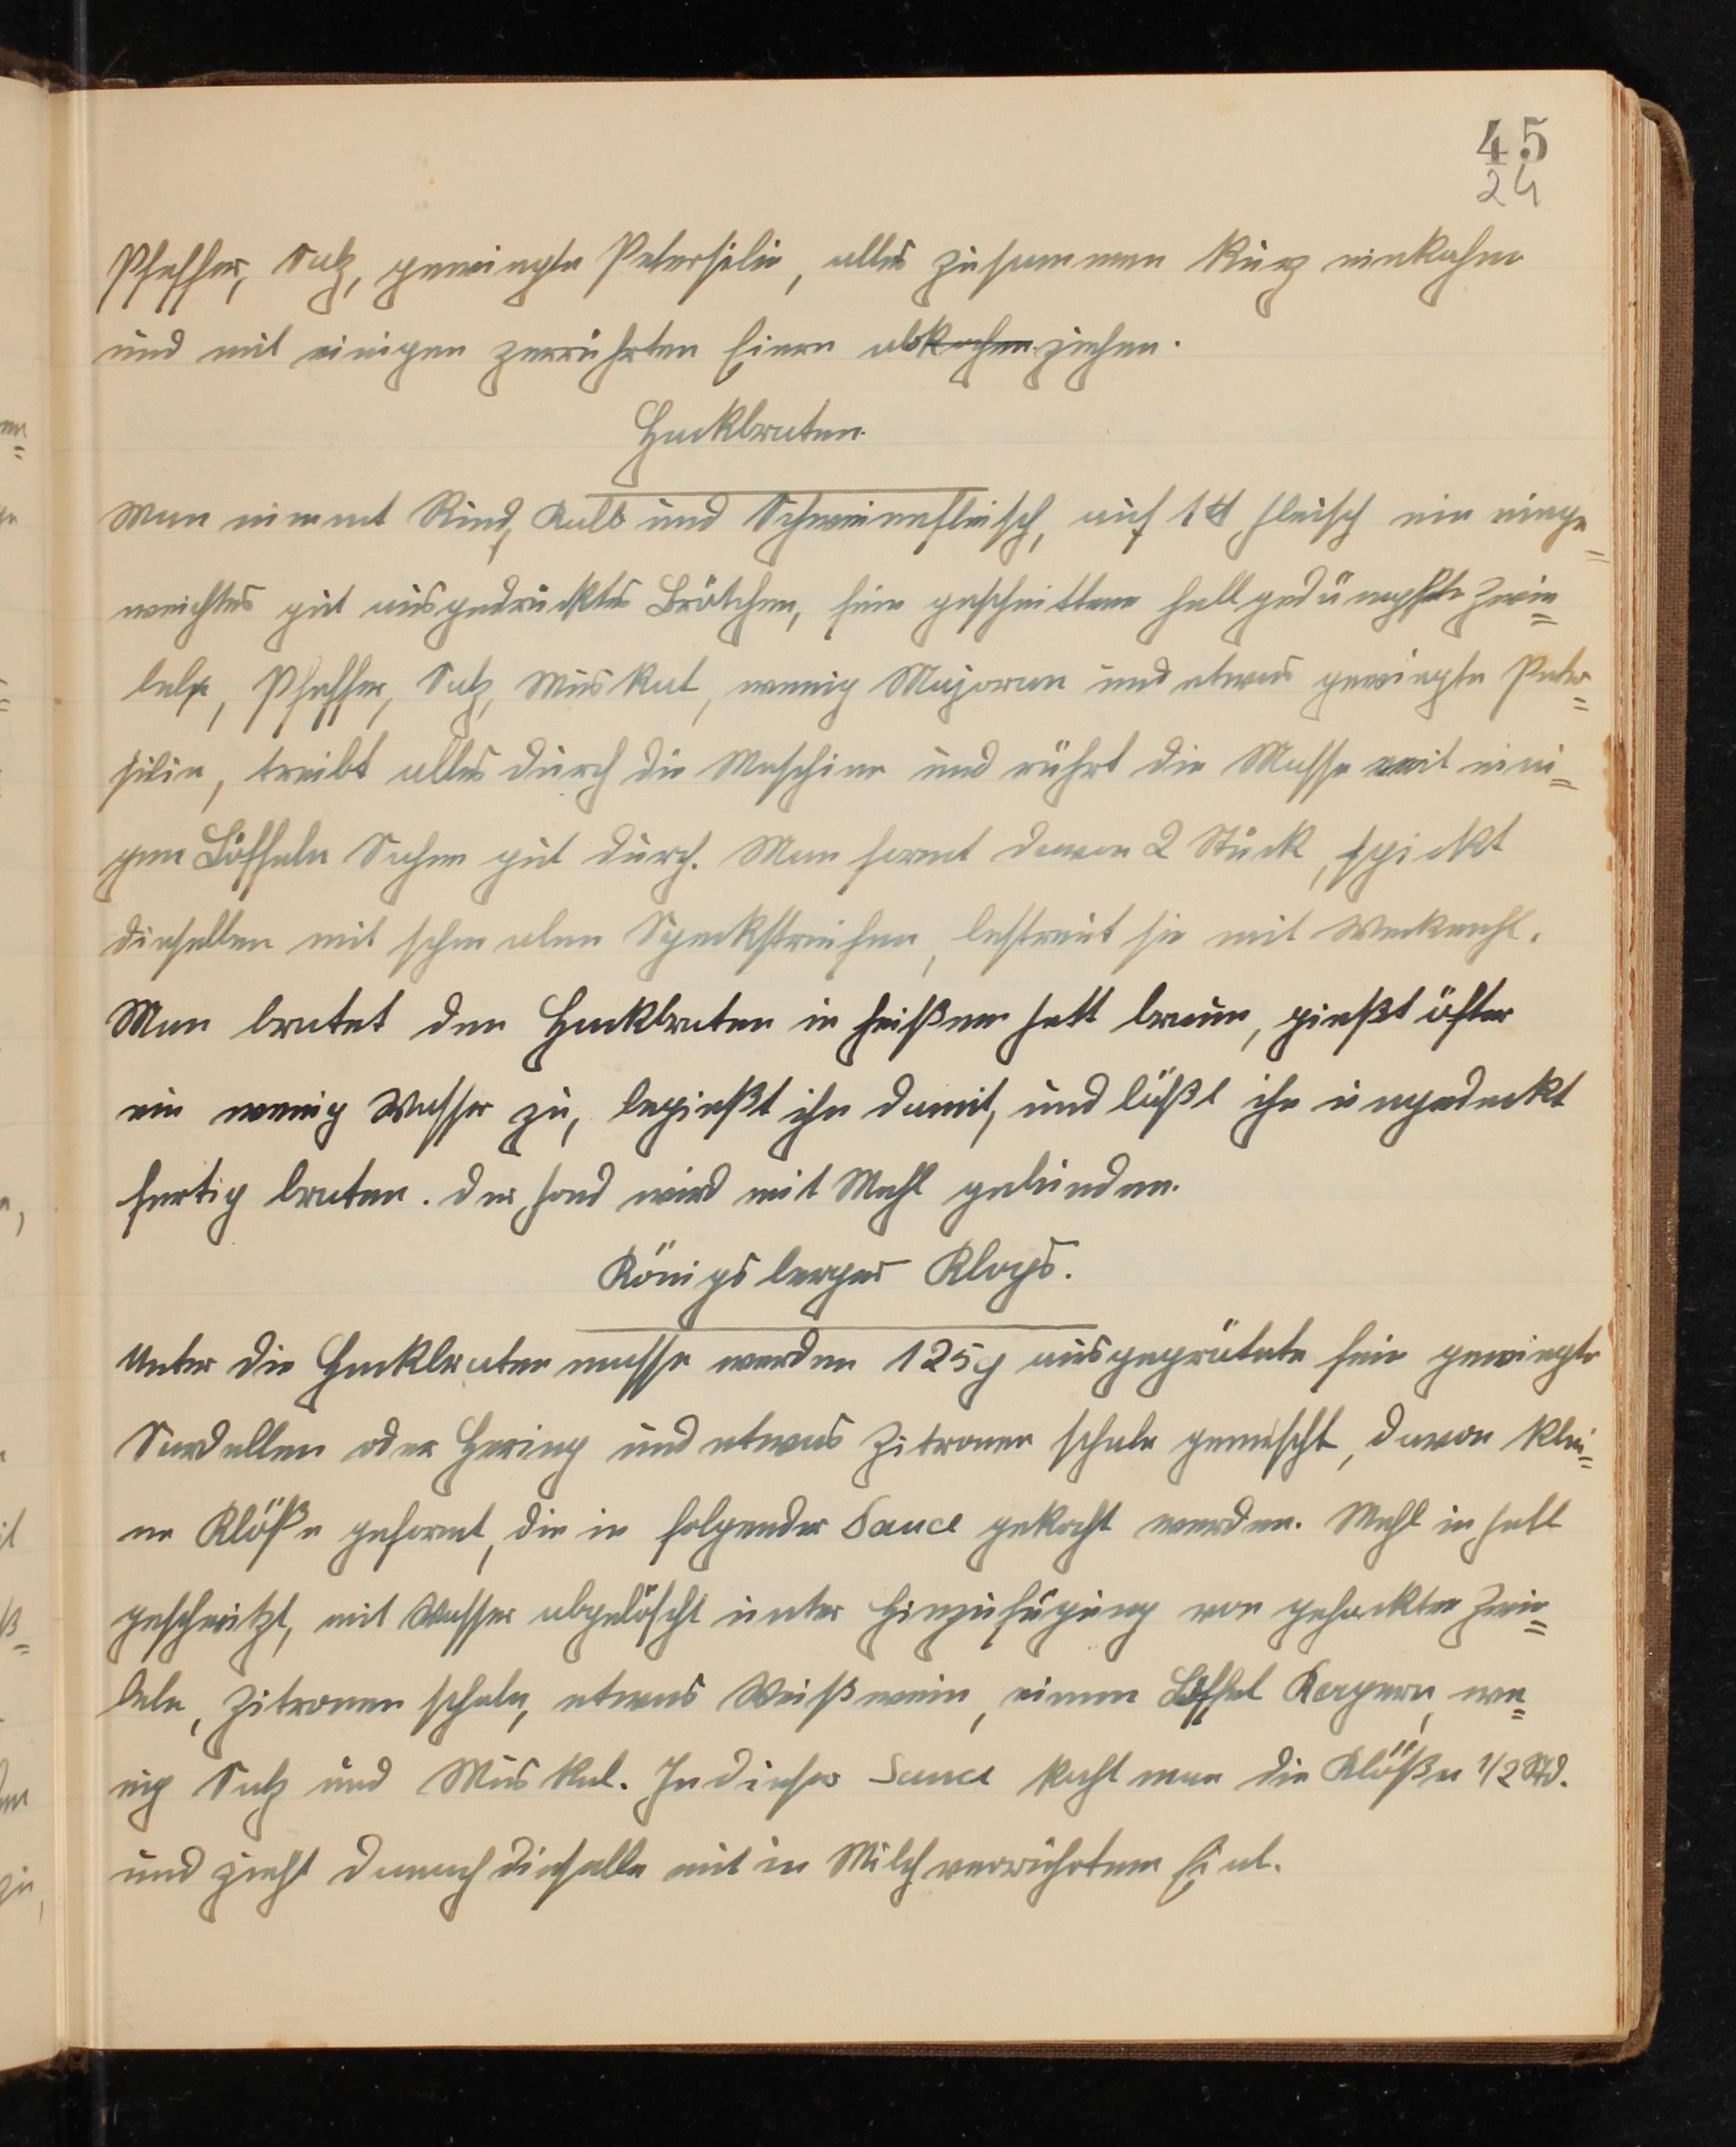 45
24
Pfeffer, Salz, gewiegte Petersilie, alles zusammen kurz einkochen
und mit einigen zerrührten Eiern abkochen ziehen.
Hackbraten.
Man nimmt Rind, Kalb und Schweinefleisch, auf 1 ℔ Fleisch ein einge-
weichtes gut ausgedrücktes Brötchen, fein geschnittene hellgedämpfte Zwie=
beln, Pfeffer, Salz, Muskat, wenig Majoran und etwas gewiegte Peter=
silie, treibt alles durch die Maschine und rührt die Masse mit eini=
gen Löffeln Sahne gut durch. Man formt davon 2 Stück, spickt
dieselben mit schmalen Speckstreifen, bestreut sie mit Weckmehl.
Man bratet den Hackbraten in heißem Fett braun, gießt öfter
ein wenig Wasser zu, begießt ihn damit, und läßt ihn ungedeckt
fertig braten. Der Fond wird mit Mehl gebunden.
Königsberger Klops.
Unter die Hackbratenmasse werden 125g ausgegrätete fein gewiegte
Sardellen oder Hering und etwas Zitronenschale gemischt, davon klei=
ne Klöße geformt, die in folgender Sauce gekocht werden. Mehl in Fett
geschwitzt, mit Wasser abgelöscht unter Hinzufügung von gehackten Zwie=
beln, Zitronenschale, etwas Weißwein, einem Löffel Kapern, we=
nig Salz und Muskat. In dieser Sauce kocht man die Klöße 1/2 Std.
und zieht danach dieselbe mit in Milch verrührtem Ei ab.